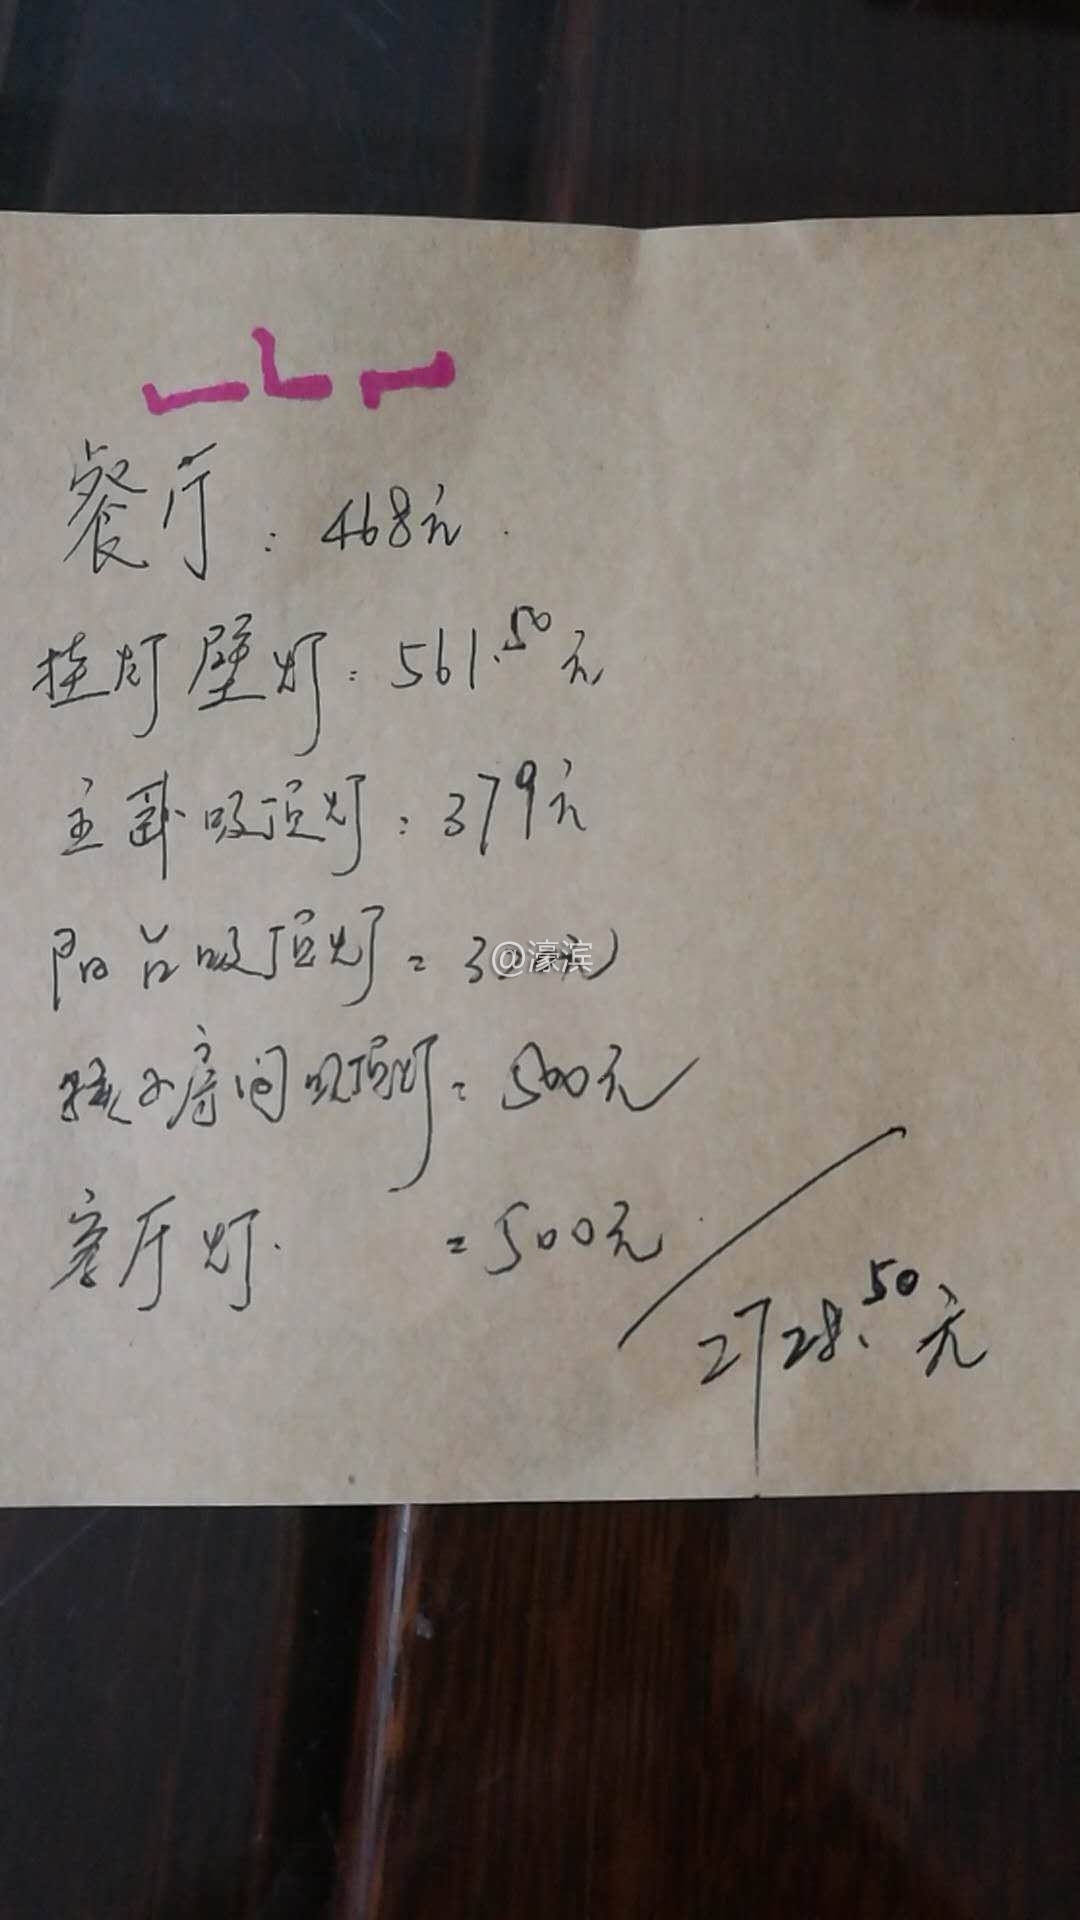 餐厅：468元.
挂灯壁灯：561.50元
主卧吸顶灯：379元
阳台吸顶灯=320元
@濠滨
孩子房间吸顶灯=500元
客厅灯. =500元
2728.50元